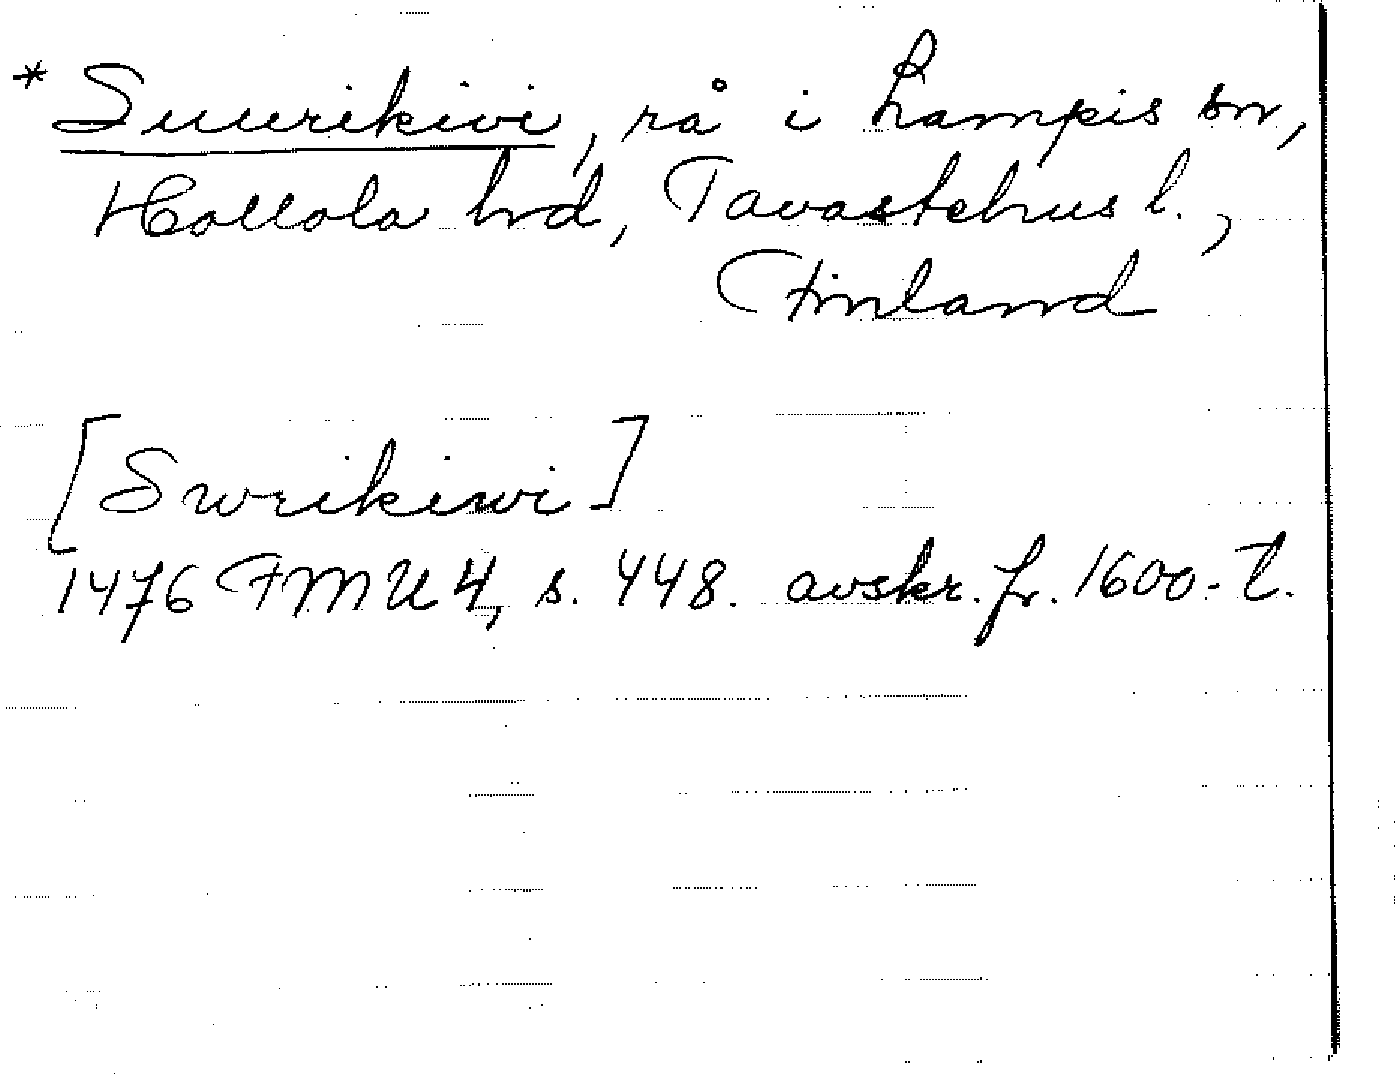 * Suurikivi, rå i Lampis sn,
Hollola hrd, Tavastehus l.,
Finland
[Swrikiwi]
1476 FMU 4, s. 448. avskr. fr. 1600-t.